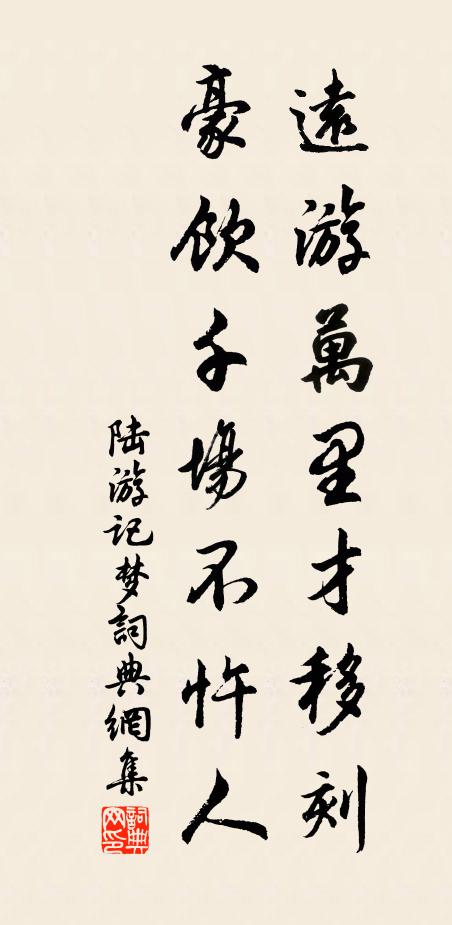 遠游萬里才移刻
豪飲千場不忤人
陆游记梦詞典網集
詞典网印